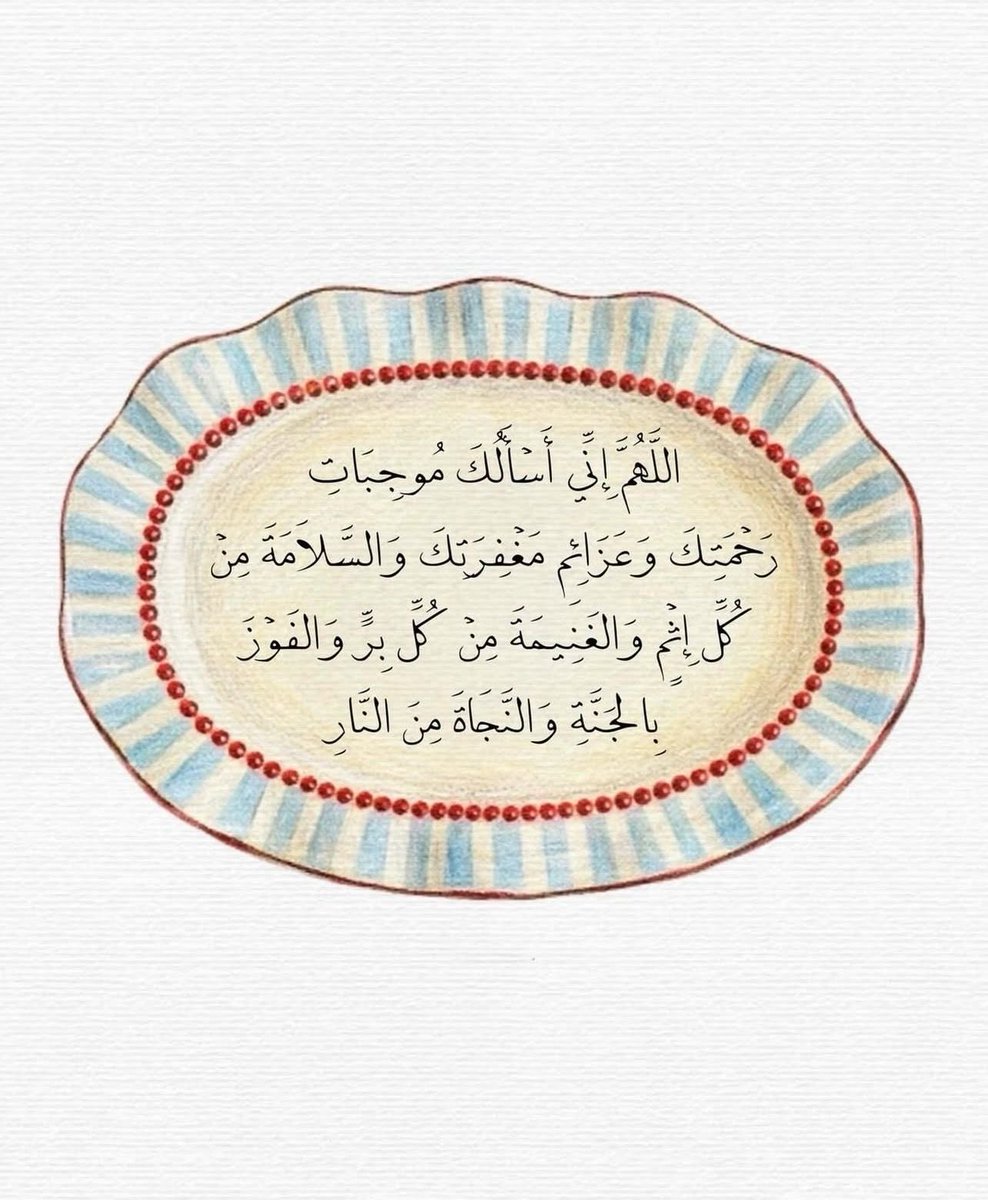 اللَّهُمَّ إِنِّي أَسْأَلُكَ مُوجِبَاتِ
رَحْمَتِكَ وَعَزَائِم مَغْفِرَتِكَ وَالسَّلَامَةَ مِنْ
كُلِّ إِثْمٍ وَالغَنِيمَةَ مِنْ كُلِّ بِرٍّ وَالفَوْزَ
بِالجَنَّةِ وَالنَّجَاةَ مِنَ النَّارِ